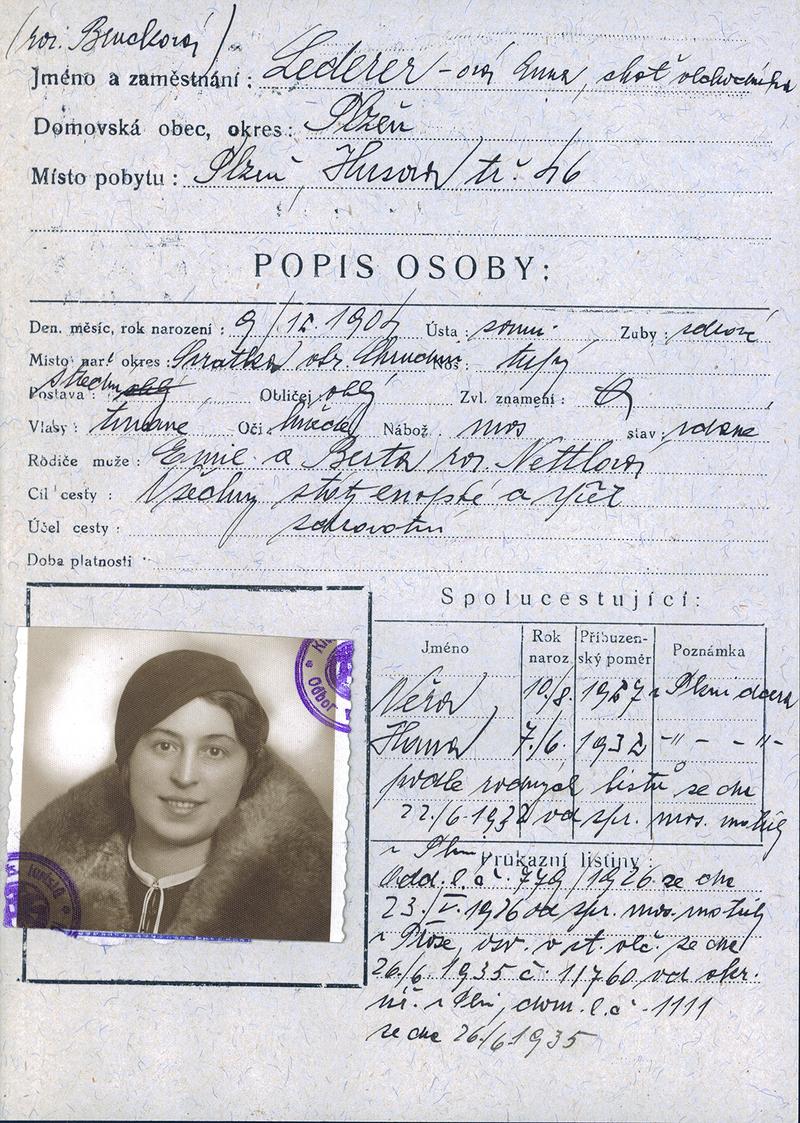 (roz. Brucková)
Jméno a zaměstnání: Lederer-ová Anna, choť obchodníka
Domovská obec, okres: Plzeň
Místo pobytu: Plzeň Husova tř. 46
POPIS OSOBY:
Den. měsíc, rok narození: 9/IX.190 Ústa: souměr. Zuby: zdravé
Místo nar. okres: Svratka okr. Chrudim Nos: tupý
Postava: střední oblý Obličej: oblý Zvl. znamení:
Vlasy: tmavé Oči: hnědé Nábož. mos stav: vdaná
Rodiče muže: Emil a Berta roz. Nettlová
Cíl cesty: Všechny státy evropské a zpět
Účel cesty: zdravotní
Doba platnosti
Spolucestující:
Jméno Rok naroz. Příbuzenský poměr Poznámka
Věra 10/8. 1927 v Plzni dcera
Hana 7/6. 1932 -"- - -"-
podle rodných listů ze dne
22./6.1932 od spr. mos. matriky
v Plzni
Průkazní listiny:
Odd. l. č. 779/1926 ze dne
23./V.1926 od spr. mos. matriky
v, osv. o st. obč. ze dne
26./6. 1935 č. 11760 od okr.
úř. v Plzni, dom. l. č. 1111
ze dne 26./6 1935
Odbor